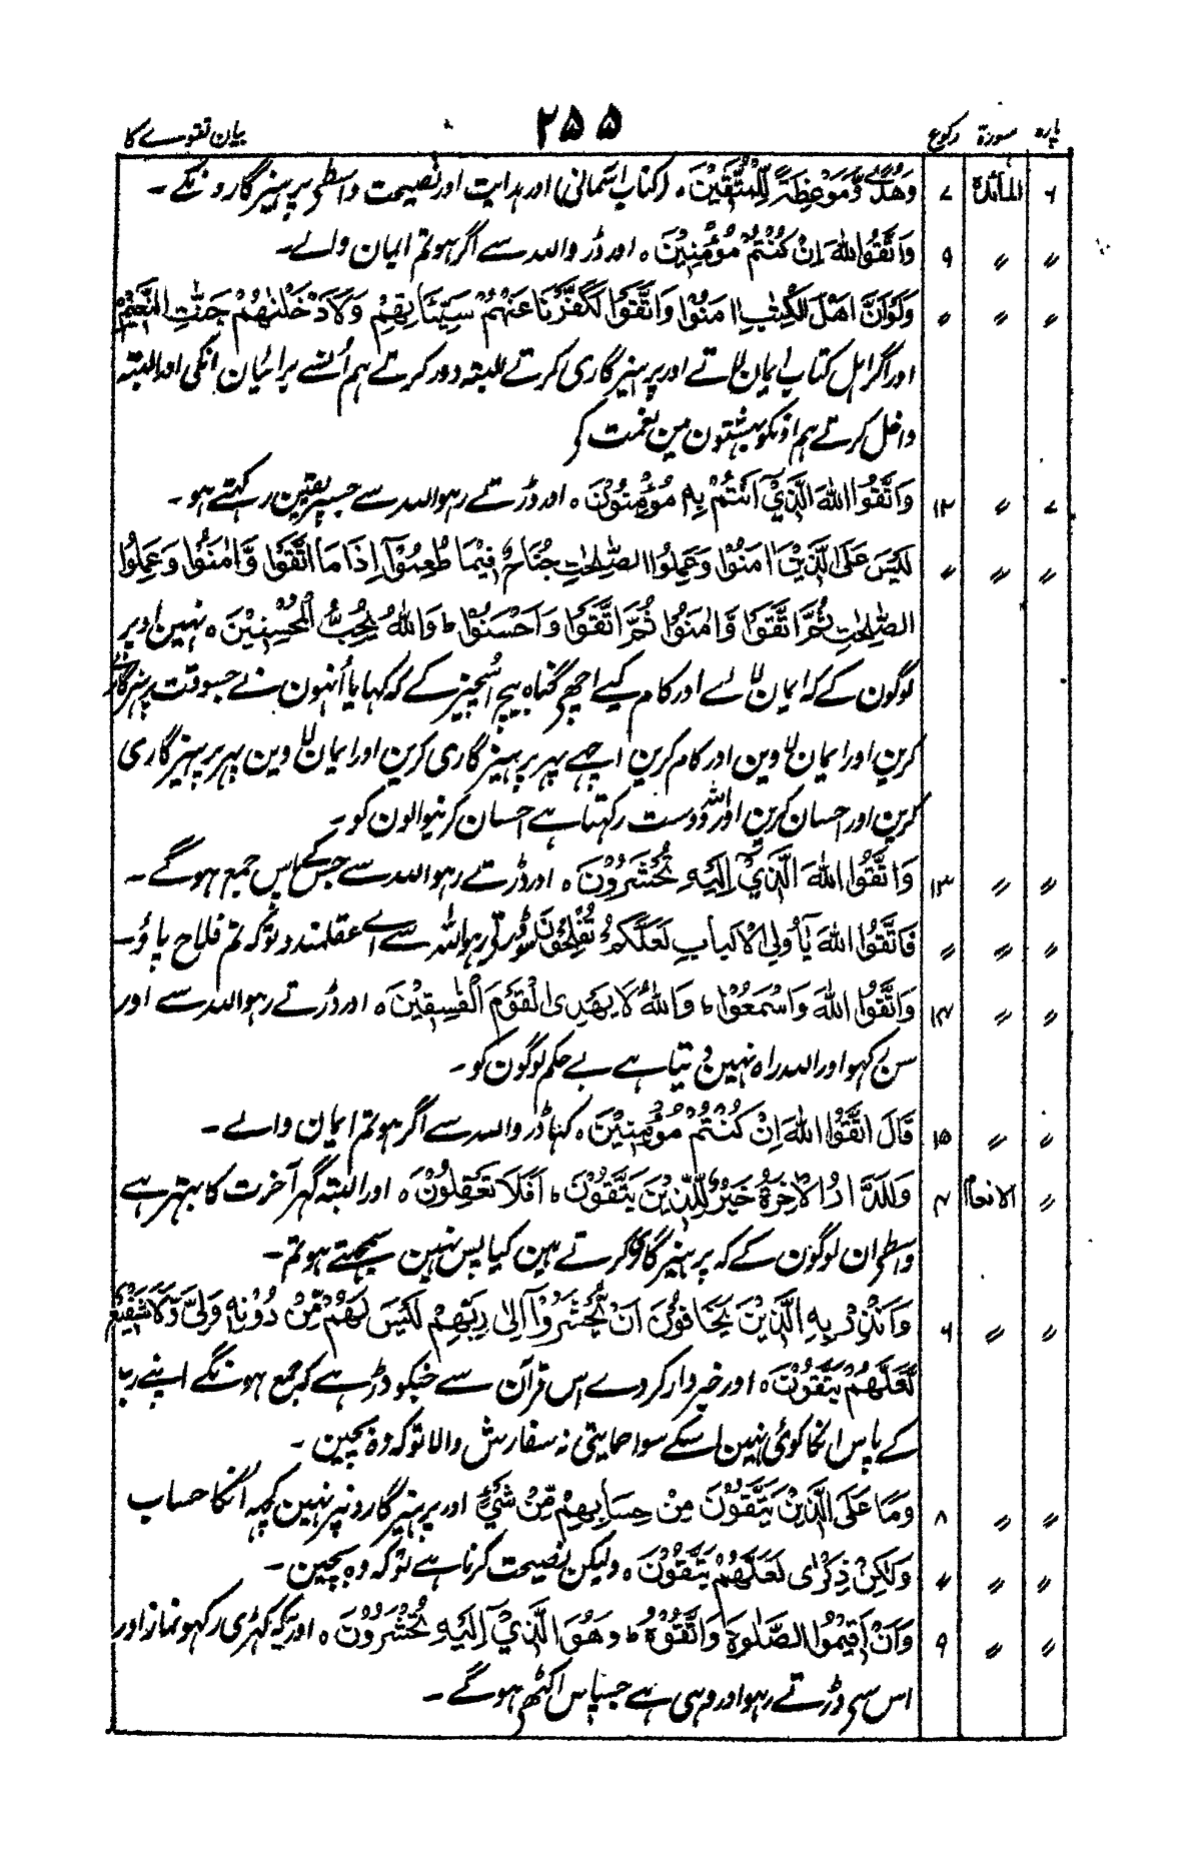 پارہ سورۃ رکوع ۲۵۵ بیان تقوے کا
۶ المائدۃ ۷ وَهُدًى وَّمَوْعِظَةً لِّلْمُتَّقِيْنَ ه (کتاب آسمانی) اور ہدایت اور نصیحت واسطے پرہیزگارونکے۔
〃 〃 ۹ وَاتَّقُوا اللهَ اِنْ كُنْتُمْ مُؤْمِنِيْنَ ه اور ڈرو اللہ سے اگر ہو تم ایمان والے۔
〃 〃 〃 وَلَوْ اَنَّ اَهْلَ الْكِتٰبِ اٰمَنُوْا وَاتَّقَوْا لَكَفَّرْنَا عَنْهُمْ سَيِّئَاتِهِمْ وَلَاَدْخَلْنٰهُمْ جَنّٰتِ النَّعِيْمِ
اور اگر اہل کتاب ایمان لاتے اور پرہیزگاری کرتے البتہ دور کرتے ہم اُنسے برائیان انکی اور البتہ
داخل کرتے ہم اونکو بہشتون مین نعمت کو
۷ 〃 ۱۲ وَاتَّقُوا اللهَ الَّذِيْٓ اَنْتُمْ بِهٖ مُؤْمِنُوْنَ ه اور ڈرتے رہو اللہ سے جسپر یقین رکہتے ہو۔
〃 〃 〃 لَيْسَ عَلَى الَّذِيْنَ اٰمَنُوْا وَعَمِلُوا الصّٰلِحٰتِ جُنَاحٌ فِيْمَا طَعِمُوْٓا اِذَا مَا اتَّقَوْا وَّاٰمَنُوْا وَعَمِلُوا
الصّٰلِحٰتِ ثُمَّ اتَّقَوْا وَّاٰمَنُوْا ثُمَّ اتَّقَوْا وَاَحْسَنُوْا ط وَاللهُ يُحِبُّ الْمُحْسِنِيْنَ ه نہین اوپر
لوگون کے کہ ایمان لائے اور کام کیے اچھے گناہ بیچ اُسچیز کے کہ کہایا اُنہون نے جسوقت پرہیزگاری
کرین اور ایمان لاوین اور کام کرین اچھے پہر پرہیزگاری کرین اور ایمان لاوین پہر پرہیزگاری
کرین اور احسان کرین اور اللہ دوست رکہتا ہے احسان کرنیوالون کو۔
〃 〃 ۱۳ وَاتَّقُوا اللهَ الَّذِيْٓ اِلَيْهِ تُحْشَرُوْنَ ه اور ڈرتے رہو اللہ سے جسکے پاس جمع ہوگے۔
〃 〃 〃 فَاتَّقُوا اللهَ يٰٓاُولِي الْاَلْبَابِ لَعَلَّكُمْ تُفْلِحُوْنَ سو ڈرتے رہو اللہ سے اے عقلمندو توکہ تم فلاح پاؤ۔
〃 〃 ۱۴ وَاتَّقُوا اللهَ وَاسْمَعُوْا ط وَاللهُ لَا يَهْدِى الْقَوْمَ الْفٰسِقِيْنَ ه اور ڈرتے رہو اللہ سے اور
سن رکہو اور اللہ راہ نہین دیتا ہے بے حکم لوگون کو۔
〃 〃 ۱۵ قَالَ اتَّقُوا اللهَ اِنْ كُنْتُمْ مُؤْمِنِيْنَ ه کہا ڈرو اللہ سے اگر ہو تم ایمان والے۔
〃 الانعام ۴ وَلَلدَّارُ الْاٰخِرَةُ خَيْرٌ لِّلَّذِيْنَ يَتَّقُوْنَ ه اَفَلَا تَعْقِلُوْنَ ه اور البتہ گہر آخرت کا بہتر ہے
واسطے ان لوگون کے کہ پرہیزگاری کرتے ہین کیا پس نہین سمجہتے ہو تم۔
〃 〃 ۶ وَاَنْذِرْ بِهِ الَّذِيْنَ يَخَافُوْنَ اَنْ يُّحْشَرُوْٓا اِلٰى رَبِّهِمْ لَيْسَ لَهُمْ مِّنْ دُوْنِهٖ وَلِىٌّ وَّلَا شَفِيْعٌ
لَّعَلَّهُمْ يَتَّقُوْنَ ه اور خبردار کردے اس قرآن سے جنکو ڈر ہے کہ جمع ہونگے اپنے رب
کے پاس انکا کوئی نہین اسکے سوا حمایتی نہ سفارش والا توکہ وہ بچین۔
〃 〃 ۸ وَمَا عَلَى الَّذِيْنَ يَتَّقُوْنَ مِنْ حِسَابِهِمْ مِّنْ شَيْءٍ اور پرہیزگارونپر نہین کچہ اُنکا حساب
〃 〃 〃 وَلٰكِنْ ذِكْرٰى لَعَلَّهُمْ يَتَّقُوْنَ ه ولیکن نصیحت کرنا ہے توکہ وہ بچین۔
〃 〃 ۹ وَاَنْ اَقِيْمُوا الصَّلٰوةَ وَاتَّقُوْهُ ط وَهُوَ الَّذِيْٓ اِلَيْهِ تُحْشَرُوْنَ ه اور یہکہ کہڑی رکہو نماز اور
اس سے ڈرتے رہو اور وہی ہے جسپاس اکٹھے ہوگے۔